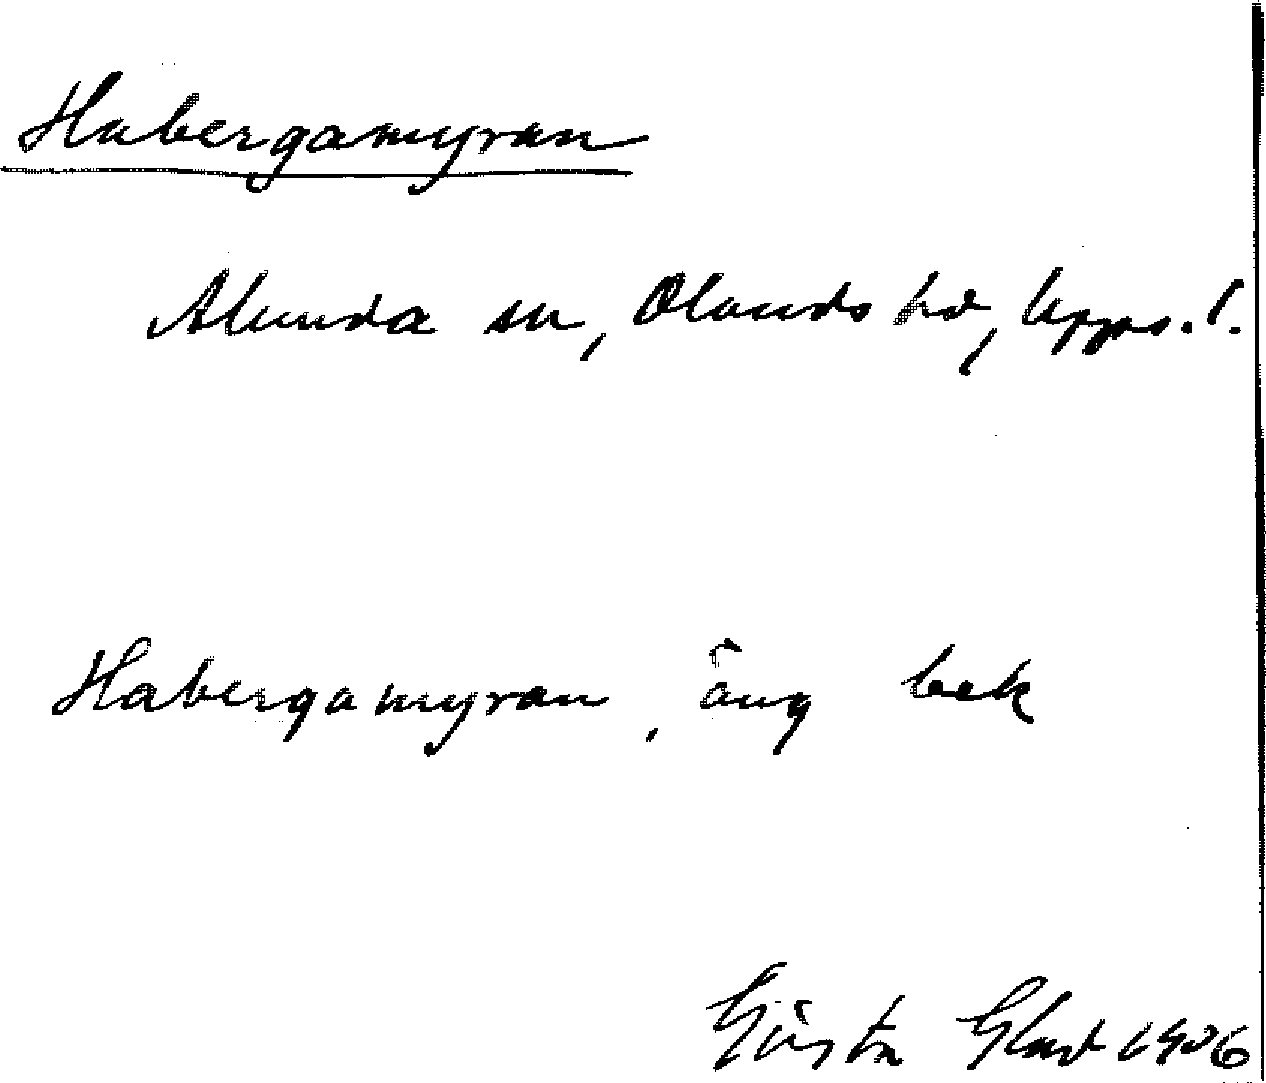 Habergamyran
Alunda sn, Olands hd, Upps. l.
Habergamyran, äng bek
Gösta Glad 1926